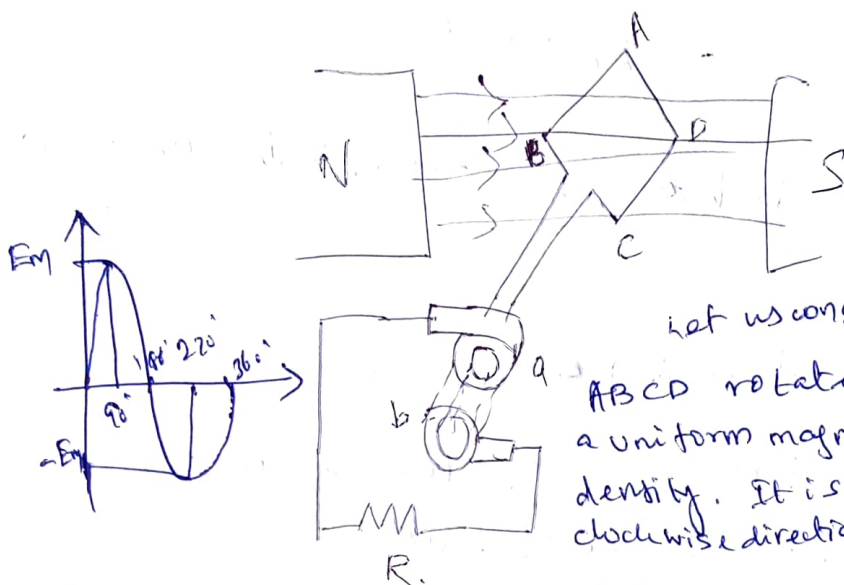 A
B
D
N
S
C
Em
180°
220°
360°
90°
-Em
a
b
R.
Let us cons
ABCD rotat
a uniform magn
density. It is
clockwise directio